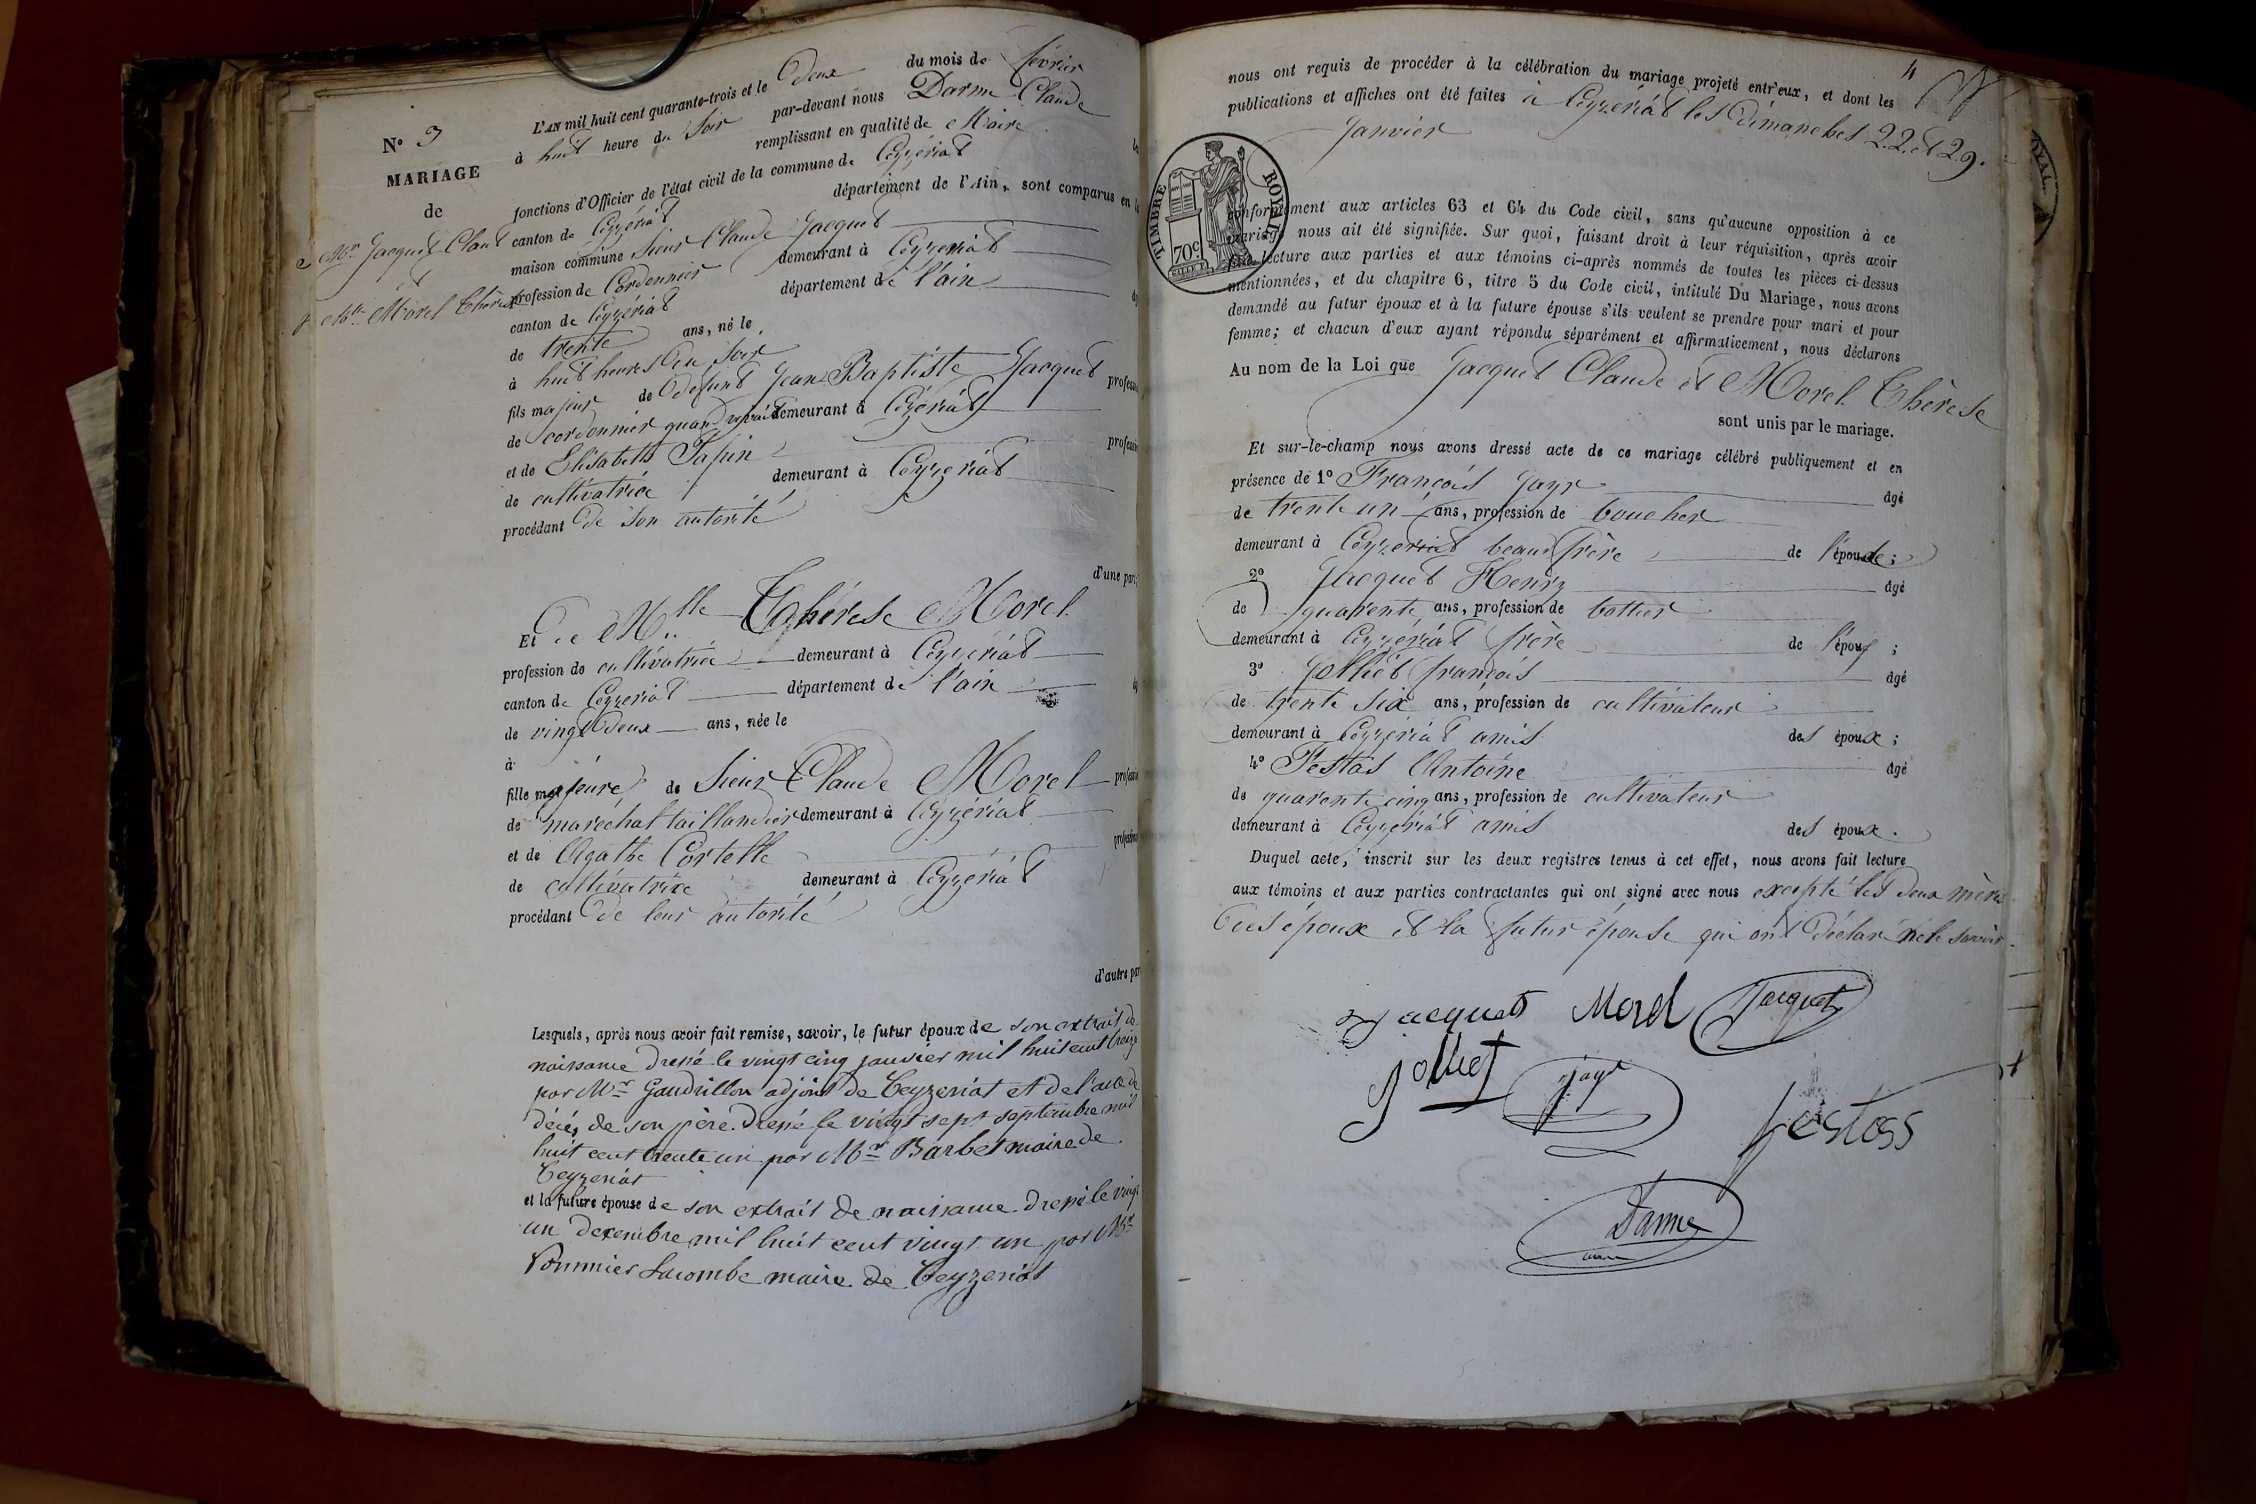 N° 3
MARIAGE
de
Mr. Jacquet Claude
et
Mlle Morel Thérèse
L'AN mil huit cent quarante-trois et le deux du mois de février
à huit heure du soir par-devant nous Darme Claude
remplissant en qualité de Maire
fonctions d'Officier de l'état civil de la commune de Ceyzériat
canton de Ceyzériat département de l'Ain, sont comparus en la
maison commune Sieur Claude Jacquet
profession de Cordonnier demeurant à Ceyzeriat
canton de Ceyzériat département de l'ain
de trente ans, né le
à huit heures du soir
fils majeur de défunt Jean Baptiste Jacquet profession
de cordonnier quand vivait demeurant à Ceyzériat
et de Elisabeth Tapin profession
de cultivatrice demeurant à Ceyzeriat
procédant de son autorité
d'une part;
Et de Mlle Thérèse Morel
profession de cultivatrice demeurant à Ceyzériat
canton de Ceyzeriat département de l'ain
de vingt deux ans, née le
à
fille majeure de Sieur Claude Morel profession
de maréchal taillandier demeurant à Ceyzériat
et de Agathe Cortelle profession
de cultivatrice demeurant à Ceyzériat
procédant de leur autorité
d'autre par
Lesquels, après nous avoir fait remise, savoir, le futur époux de son extrait de
naissance dressé le vingt cinq janvier mil huit cent treize
par Mr Gaudrillon adjoint de Ceyzeriat et de l'acte de
décés de son père dressé le vingt sept septembre mil
huit cent trente un par Mr Barbet maire de
Ceyzeriat
et la future épouse de son extrait de naissance dressé le vingt
un décembre mil huit cent vingt un par Mr
Pommier Lacombe maire de Ceyzeriat
4
nous ont requis de procéder à la célébration du mariage projeté entr'eux, et dont les
publications et affiches ont été faites à Ceyzériat les dimanches 22 et 29
Janvier
TIMBRE ROYAL
70c
conformément aux articles 63 et 64 du Code civil, sans qu'aucune opposition à ce
mariage nous ait été signifiée. Sur quoi, faisant droit à leur réquisition, après avoir
lecture aux parties et aux témoins ci-après nommés de toutes les pièces ci-dessus
mentionnées, et du chapitre 6, titre 5 du Code civil, intitulé Du Mariage, nous avons
demandé au futur époux et à la future épouse s'ils veulent se prendre pour mari et pour
femme; et chacun d'eux ayant répondu séparément et affirmativement, nous déclarons
Au nom de la Loi que Jacquet Claude et Morel Thérèse
sont unis par le mariage.
Et sur-le-champ nous avons dressé acte de ce mariage célébré publiquement et en
présence de 1° François Jayr âgé
de trente un ans, profession de boucher
demeurant à Ceyzeriat beau frère de l'épouse;
2° Jacquet Henry âgé
de quarente ans, profession de bottier
demeurant à Ceyzériat frère de l'époux;
3° Jolliet françois âgé
de trente six ans, profession de cultivateur
demeurant à Ceyzériat amis des époux;
4° Festas Antoine âgé
de quarente cinq ans, profession de cultivateur
demeurant à Ceyzériat amis des époux.
Duquel acte, inscrit sur les deux registres tenus à cet effet, nous avons fait lecture
aux témoins et aux parties contractantes qui ont signé avec nous excepté les deux mères
des époux et la futur épouse qui ont déclaré ne le savoir.
Jacquet Morel Jacquet
Jolliet Jayr
festass
Darme
maire